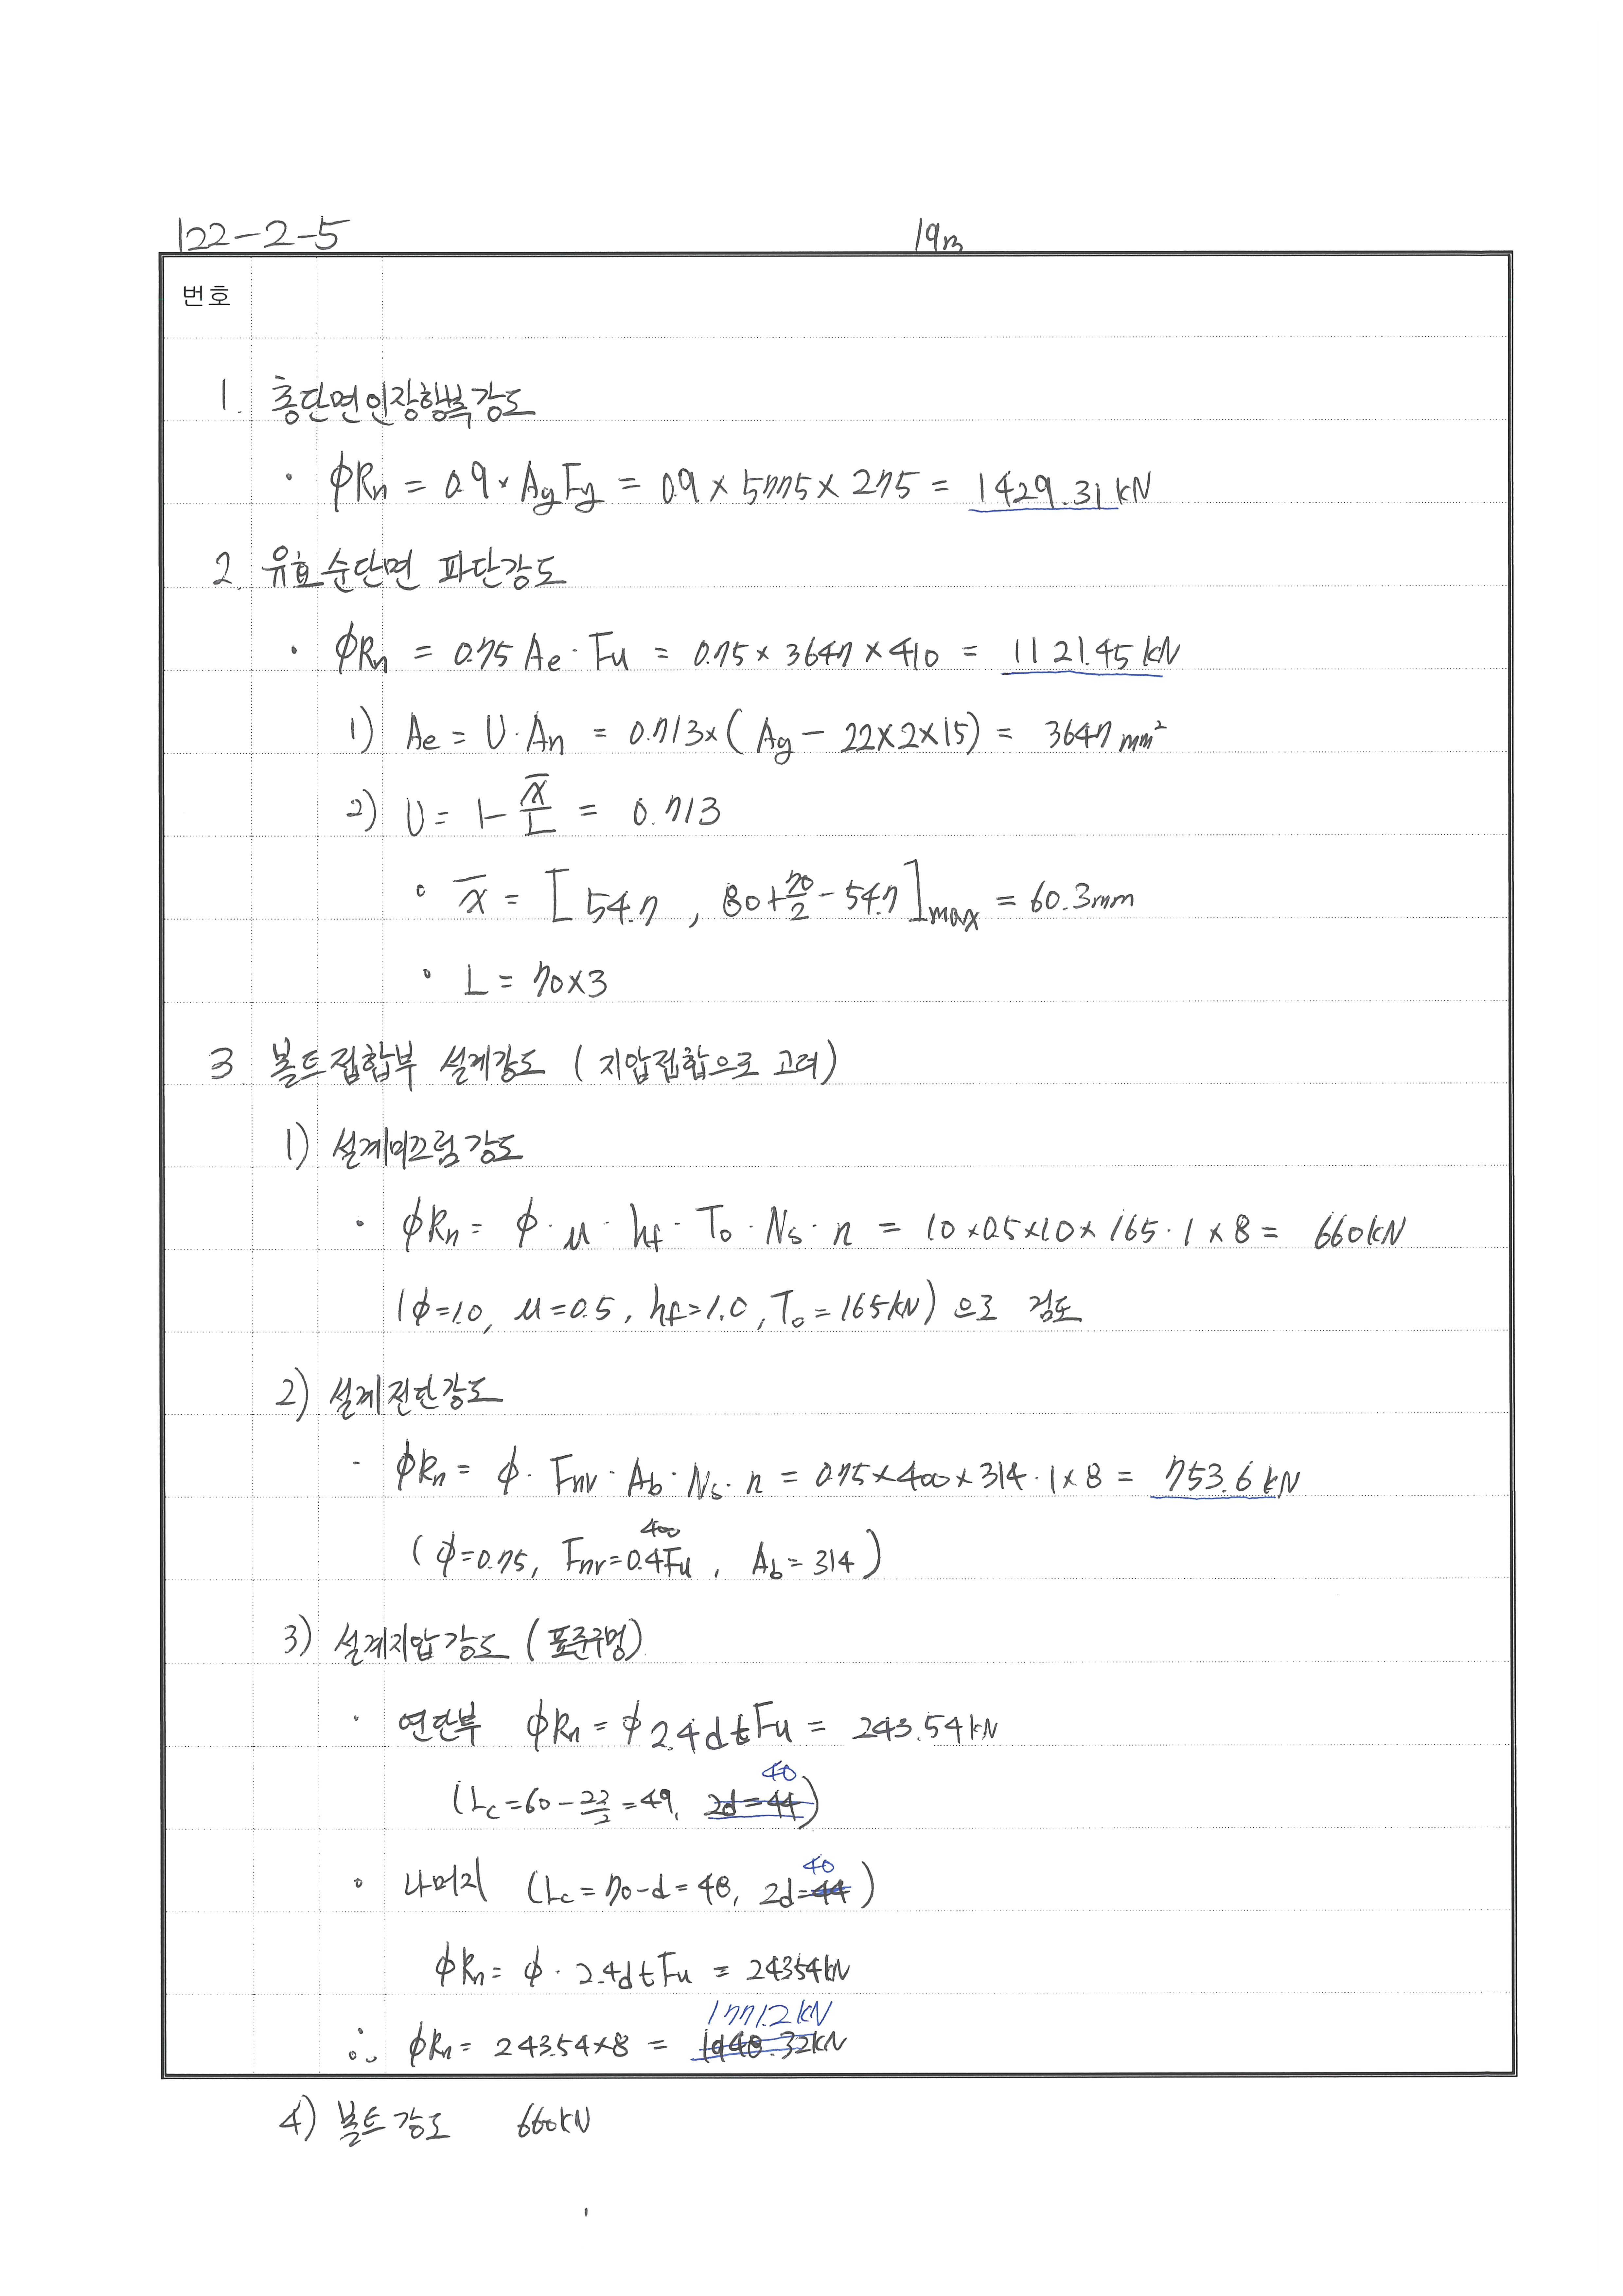 122-2-5 19m
번호
1. 총단면인장항복강도
· ϕRn = 0.9 × AgFy = 0.9 × 5775 × 275 = 1429.31 kN
2. 유효순단면 파단강도
· ϕRn = 0.75 Ae · Fu = 0.75 × 3647 × 410 = 1121.45 kN
1) Ae = U · An = 0.713 × (Ag − 22×2×15) = 3647 mm²
2) U = 1 − x̄/L = 0.713
∘ x̄ = [54.7 , 80 + 70/2 − 54.7]max = 60.3mm
∘ L = 70×3
3 볼트접합부 설계강도 (지압접합으로 고려)
1) 설계미끄럼강도
· ϕRn = ϕ · μ · hf · To · Ns · n = 1.0 × 0.5 × 1.0 × 165 · 1 × 8 = 660kN
(ϕ=1.0, μ=0.5, hf=1.0, To=165kN) 으로 검토
2) 설계전단강도
· ϕRn = ϕ · Fnv · Ab · Ns · n = 0.75 × 400 × 314 · 1 × 8 = 753.6 kN
400
(ϕ=0.75, Fnv=0.4Fu, Ab=314)
3) 설계지압강도 (표준구멍)
· 연단부 ϕRn = ϕ 2.4dtFu = 243.54kN
40
(Lc = 60 − 22/2 = 49, 2d=44)
40
∘ 나머지 (Lc = 70−d = 48, 2d=44)
ϕRn = ϕ · 2.4dtFu = 243.54kN
1771.2kN
∴ ϕRn = 243.54×8 = 1948.32kN
4) 볼트강도 660kN